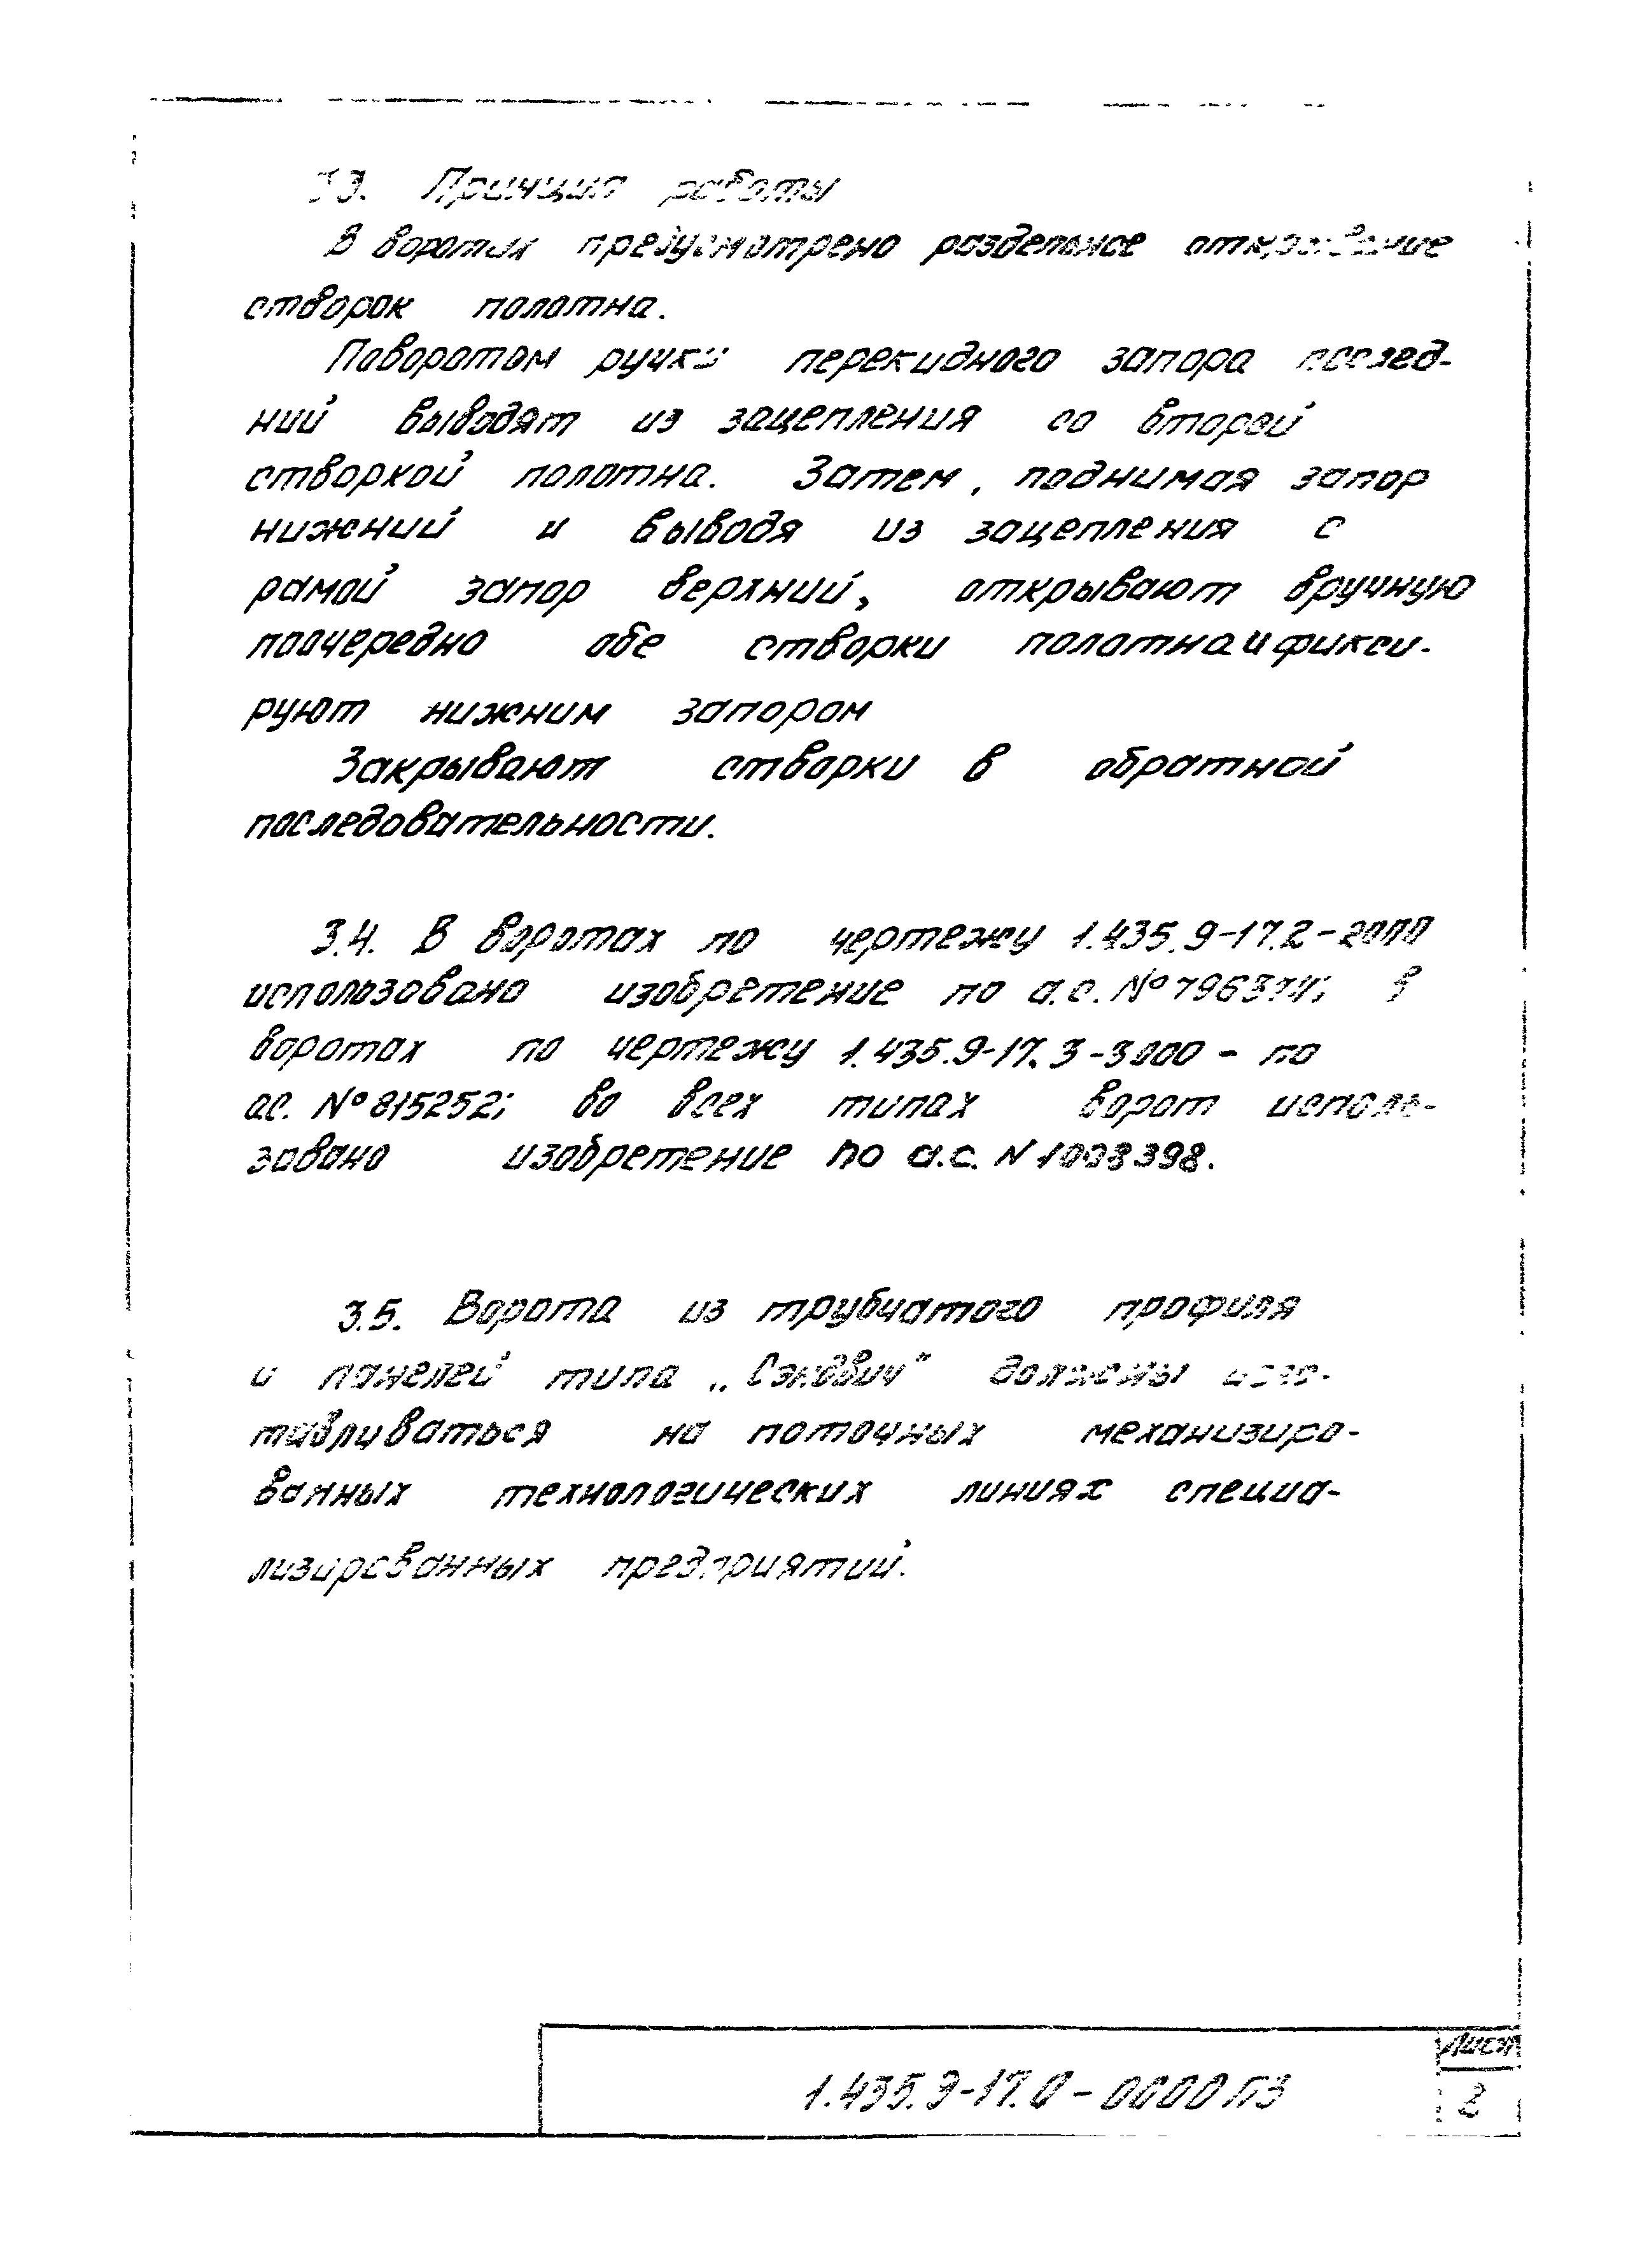 3.3. Принцип работы
В воротах предусмотрено раздельное открывание
створок полотна.
Поворотом ручки перекидного запора послед-
ний выводят из зацепления со второй
створкой полотна. Затем, поднимая запор
нижний и выводя из зацепления с
рамой запор верхний, открывают вручную
поочередно обе створки полотна и фикси-
руют нижним запором
Закрывают створки в обратной
последовательности.
3.4. В воротах по чертежу 1.435.9-17.2-2000
использовано изобретение по а.с. №796374; в
воротах по чертежу 1.435.9-17.3-3000 - по
ас. №815252; во всех типах ворот исполь-
зовано изобретение по а.с. N 1008398.
3.5. Ворота из трубчатого профиля
и панелей типа „Сэндвич" должны изго-
тавливаться на поточных механизиро-
ванных технологических линиях специа-
лизированных предприятий.
1.435.9-17.0-0000ПЗ
Лист
2